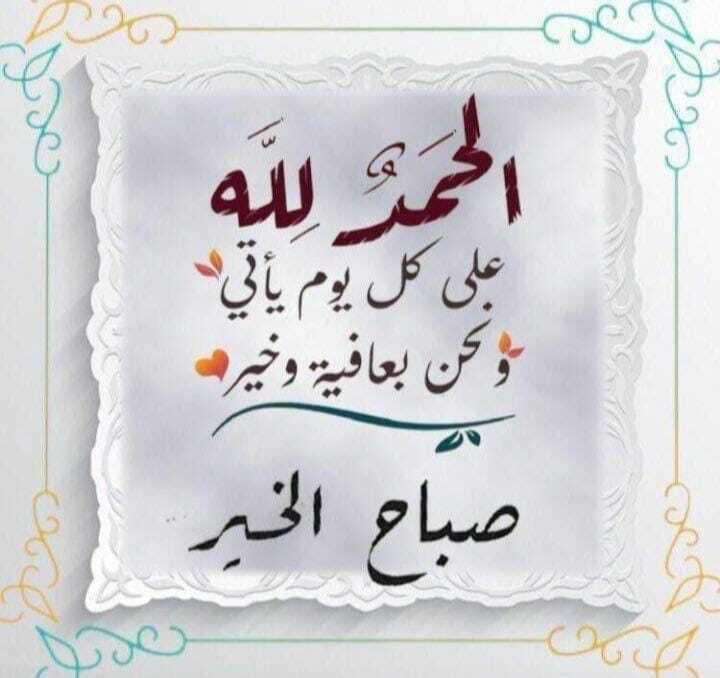 الحمد لله
على كل يوم يأتي
ونحن بعافية وخير
صباح الخير..